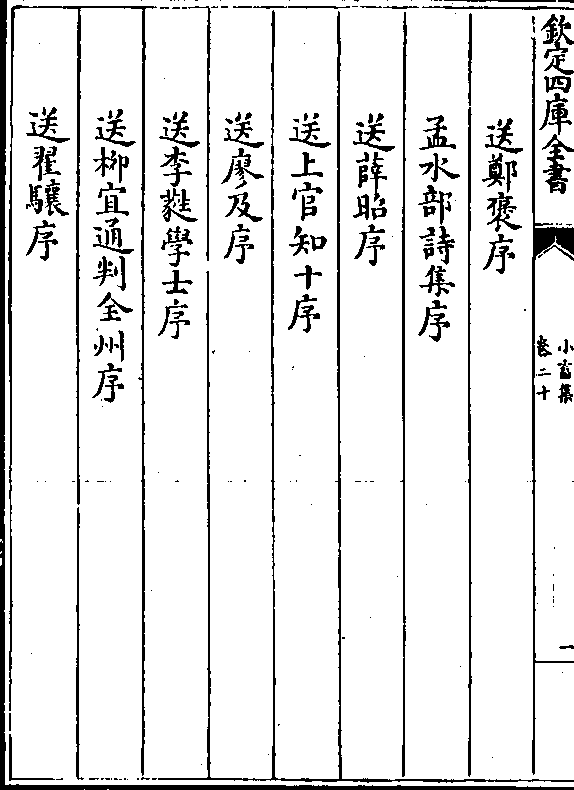 欽定四庫全書
小畜集
卷二十
一
送鄭褒序
孟水部詩集序
送薛昭序
送上官知十序
送廖及序
送李蕤學士序
送柳宜通判全州序
送翟驤序